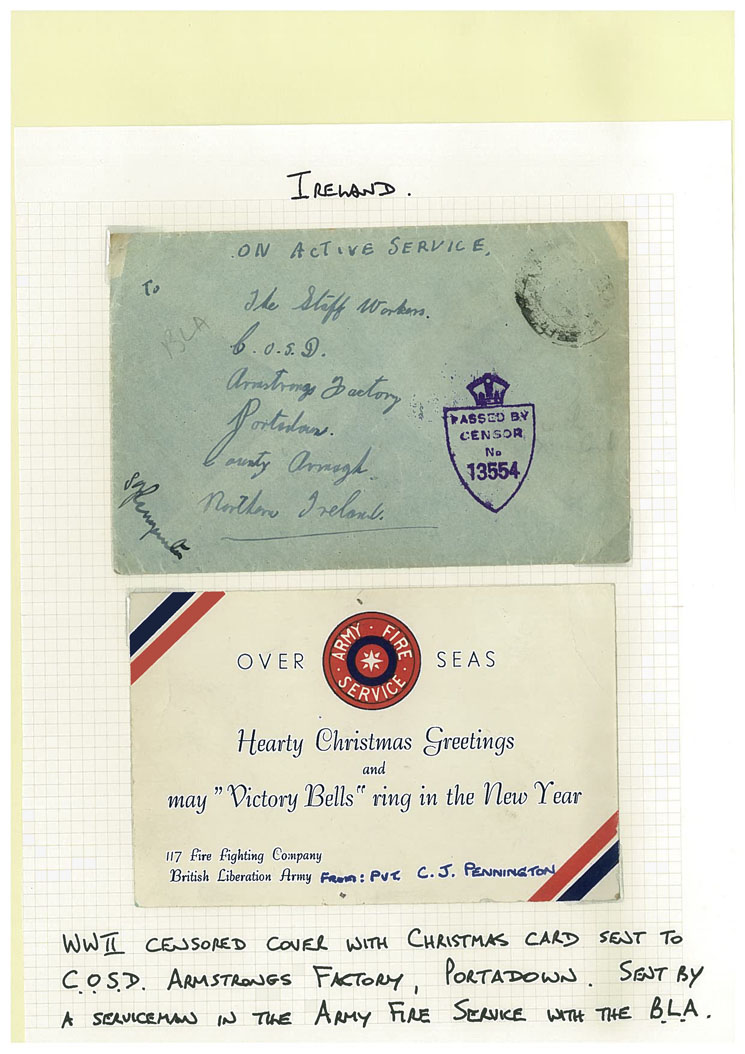 IRELAND.
ON ACTIVE SERVICE.
To
The Staff Workers.
BLA
C.O.S.D.
Armstrongs Factory
Portadown.
County Armagh.
Northern Ireland.
PASSED BY
CENSOR
No
13554
OVER SEAS
ARMY · FIRE
· SERVICE ·
Hearty Christmas Greetings
and
may "Victory Bells" ring in the New Year
117 Fire Fighting Company
British Liberation Army From: PVT. C. J. PENNINGTON
WWII CENSORED COVER WITH CHRISTMAS CARD SENT TO
C.O.S.D. ARMSTRONGS FACTORY, PORTADOWN. SENT BY
A SERVICEMAN IN THE ARMY FIRE SERVICE WITH THE B.L.A.